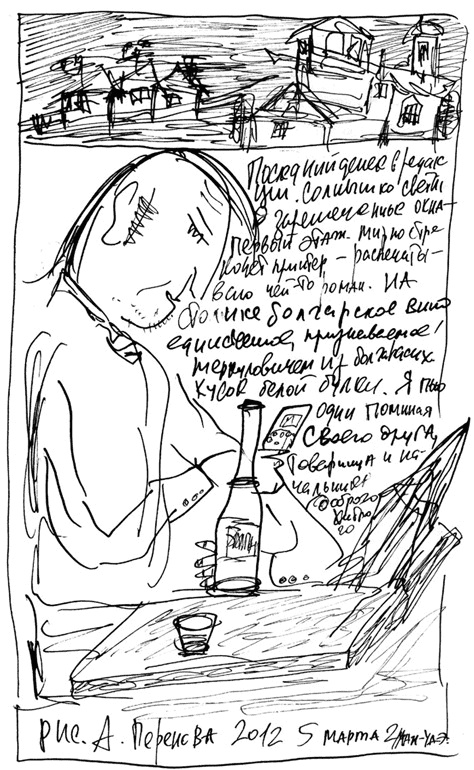 Последний денек в редак
ции. Солнышко свети
зарешеченные окна-
первый этаж. Мирно стре
кочет принтер - распечаты-
ваю чей-то роман. На
столике болгарское вино
единственное, признаваемое
Меркуловичем из болгарских
кусок белой булки. Я пью
один поминая
своего друга,
товарища и на-
чальника
доброго
Рис. А. Перенсва 2012 5 марта